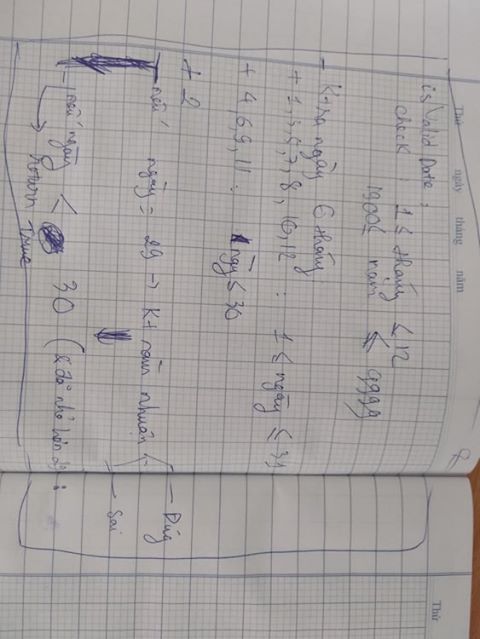 Thứ ngày tháng năm
Thứ
is Valid Date :
check 1 ≤ tháng ≤ 12
1900 ≤ năm ≤ 9999
- K+ra ngày 6 tháng
+ 1,3,5,7,8,10,12 : 1 ≤ ngày ≤ 31
+ 4,6,9,11 : ngày ≤ 30
+ 2
- nếu ngày = 29 → K+ năm nhuận
- Đúg
- Sai
- nếu ngày < 30 (& đã nhỏ hơn 29) :
→ return True